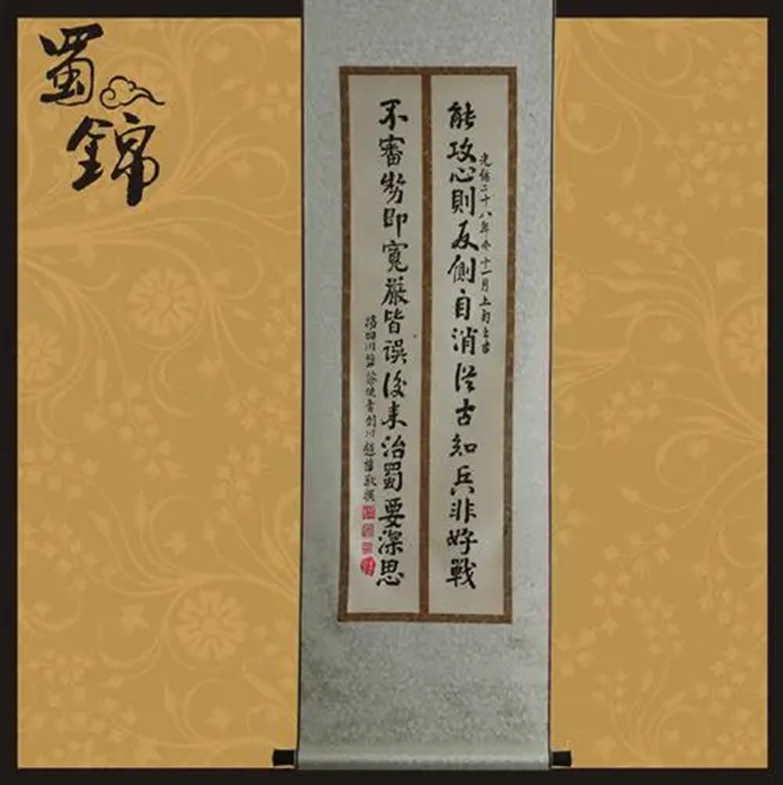 蜀
錦
能攻心則反側自消從古知兵非好戰
光緒二十八年冬十一月上旬上吉
不審勢即寬嚴皆誤後來治蜀要深思
四川鹽茶使者劍川趙藩敬撰